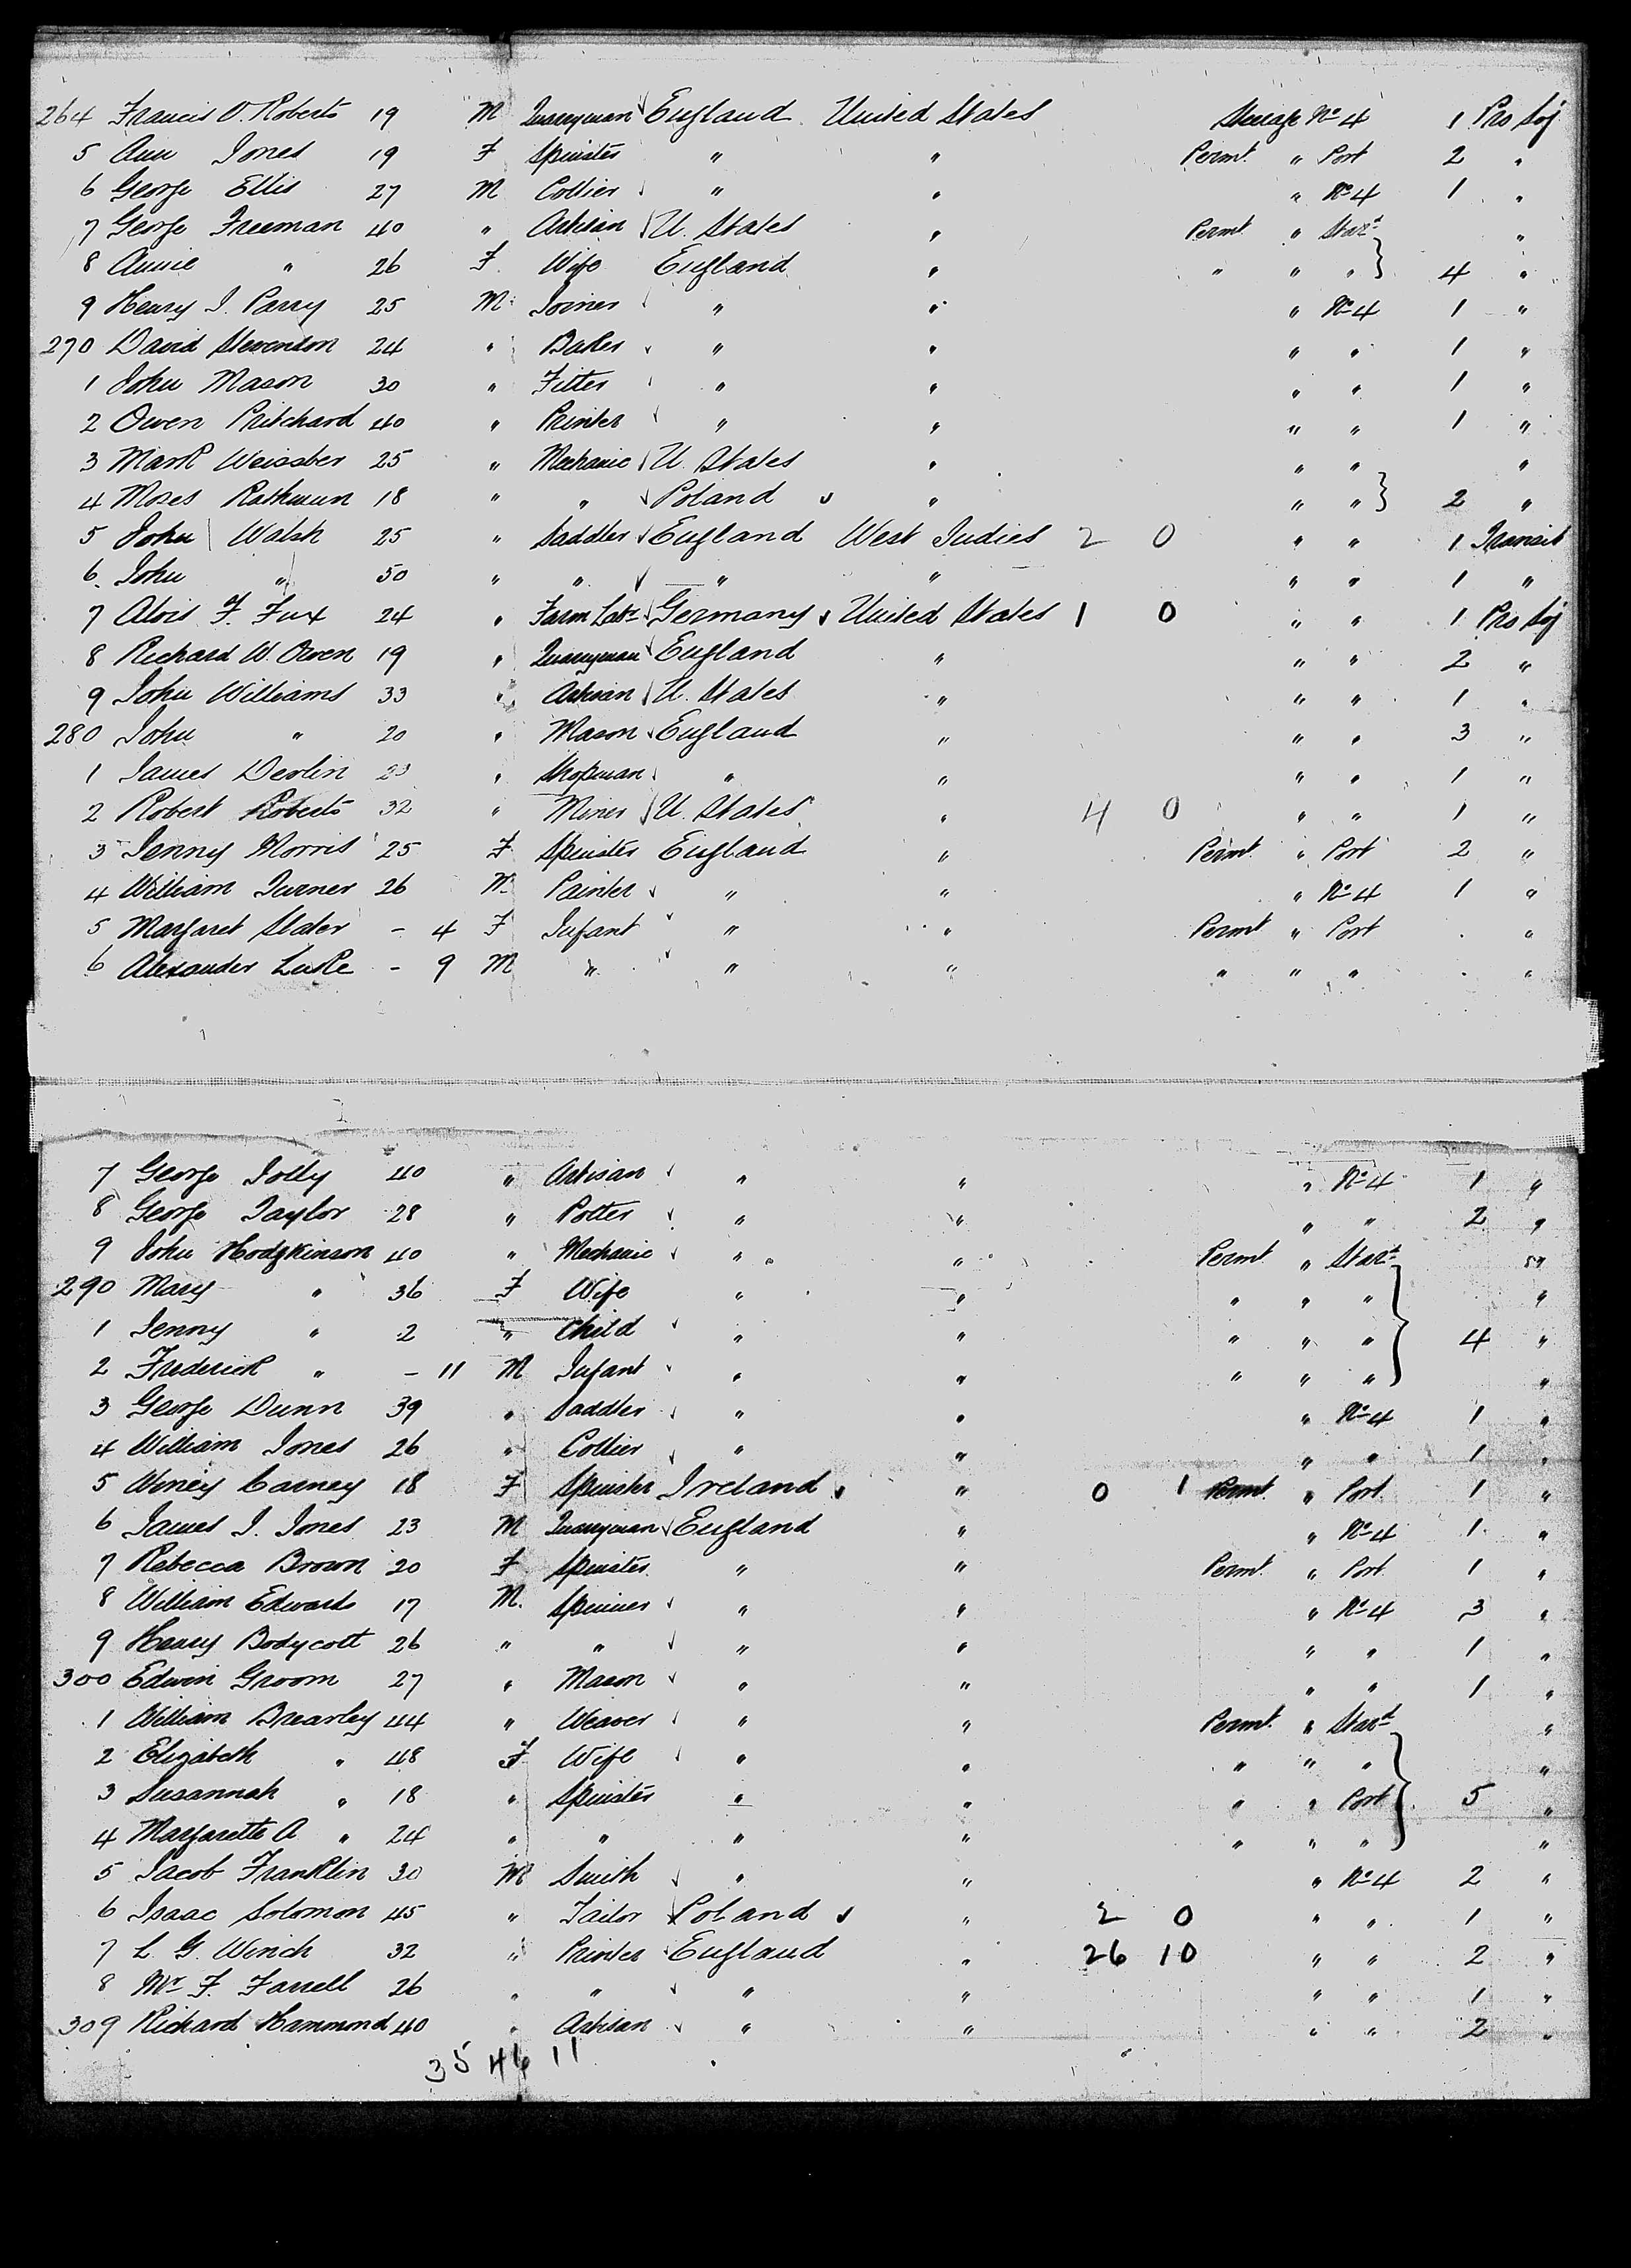 264 Francis O. Roberts 19 M Quarryman England United States Steerage No 4 1 Pro Soj
5 Ann Jones 19 F Spinster " " Permt. " Port 2 "
6 George Ellis 27 M Collier " " " No 4 1 "
7 George Freeman 40 " Artisan U. States " Permt " Starb "
8 Annie " 26 F. Wife England " " " " 4 "
9 Henry J. Parry 25 M. Joiner " " " No 4 1 "
270 David Stevenson 24 " Baker " " " " 1 "
1 John Mason 30 " Fitter " " " " 1 "
2 Owen Pritchard 40 " Printer " " " " 1 "
3 Mark Weissber 25 " Mechanic U. States " " " "
4 Moses Rathmun 18 " " Poland " " " 2 "
5 John Walsh 25 " Saddler England West Indies 2 0 " " 1 Transit
6. John " 50 " " " " " " 1 "
7 Alois F. Fux 24 " Farm Labr Germany United States 1 0 " " 1 Pro Soj
8 Richard W. Owen 19 " Quarryman England " " " 2 "
9 John Williams 33 " Artisan U. States " " " 1 "
280 John " 20 " Mason England " " " 3 "
1 James Devlin 23 " Shopman " " " " 1 "
2 Robert Roberts 32 " Miner U. States " 4 0 " " 1 "
3 Jenny Morris 25 F Spinster England " Permt. " Port 2 "
4 William Turner 26 M. Painter " " " No 4 1 "
5 Margaret Slater - 4 F Infant " " Permt " Port . "
6 Alexander Luke - 9 M " " " " " " . "
7 George Jolly 40 " Artisan " " " No 4 1 "
8 George Taylor 28 " Potter " " " " 2 "
9 John Hodgkinson 40 " Mechanic " " Permt " Starb "
290 Mary " 36 F Wife " " " " " "
1 Jenny " 2 " Child " " " " " 4 "
2 Frederick " - 11 M Infant " " " " " "
3 George Dunn 39 " Saddler " " " No 4 1 "
4 William Jones 26 " Collier " " " " 1 "
5 Winey Carney 18 F Spinster Ireland " 0 1 Permt. " Port 1 "
6 James J. Jones 23 M Quarryman England " " No 4 1. "
7 Rebecca Brown 20 F Spinster " " Permt. " Port. 1 "
8 William Edwards 17 M. Spinner " " " No 4 3 "
9 Henry Bodycott 26 " " " " " " 1 "
300 Edwin Groom 27 " Mason " " " " 1 "
1 William Brearley 44 " Weaver " " Permt. " Starb "
2 Elizabeth " 48 F Wife " " " " " "
3 Susannah " 18 " Spinster " " " " Port 5 "
4 Margarette A " 24 " " " " " " " "
5 Jacob Franklin 30 M Smith " " " No 4 2 "
6 Isaac Solomon 45 " Tailor Poland " 2 0 " " 1 "
7 L. G. Winch 32 " Printer England " 26 10 " " 2 "
8 Mr F. Farrell 26 " " " " " " 1 "
309 Richard Hammond 40 " Artisan " " " " 2 "
35 46 11